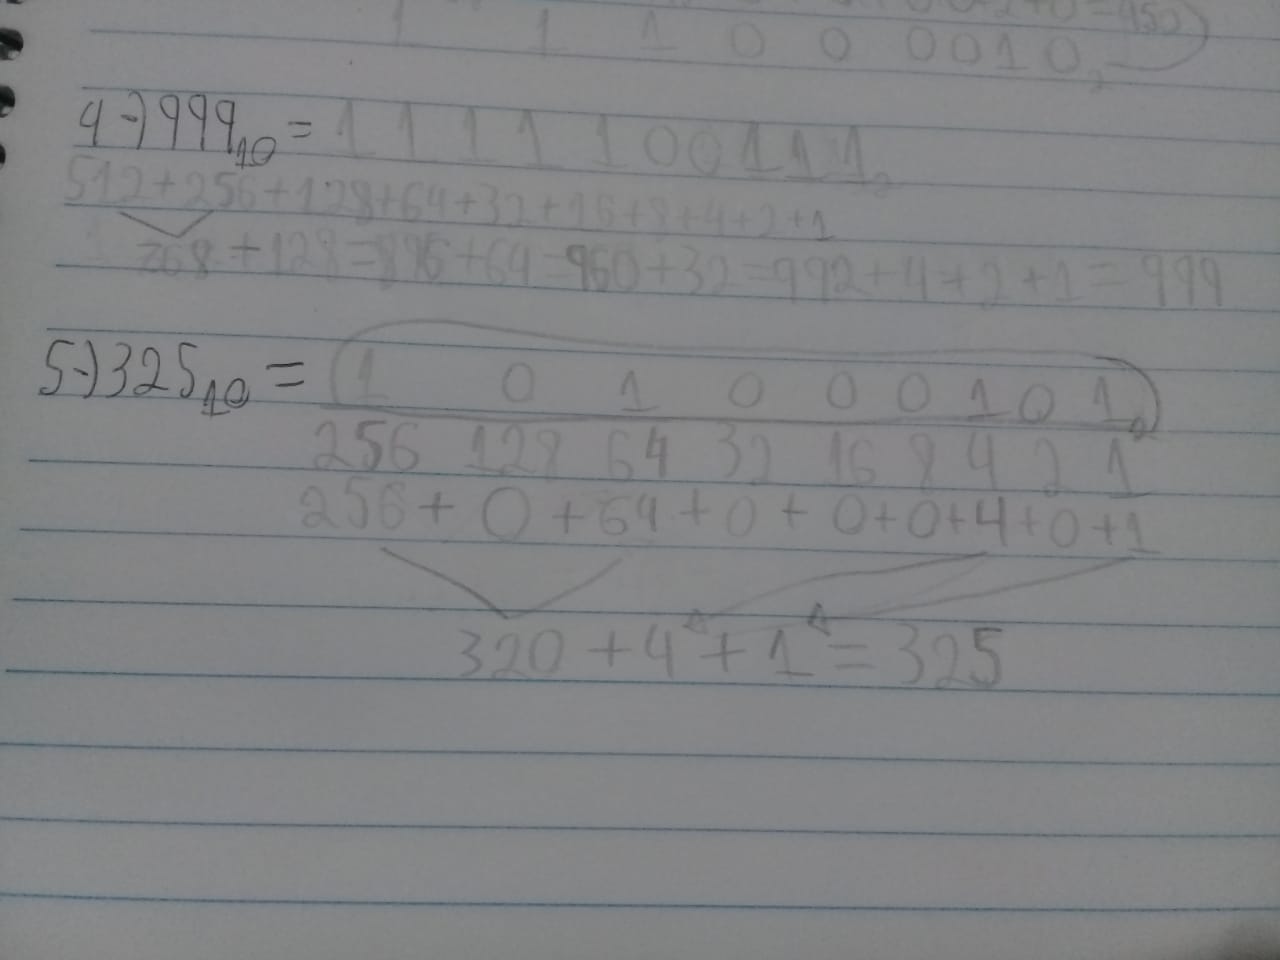 0+2+0=450
1 1 1 0 0 0 0 1 0₂
4-)999₁₀ = 1 1 1 1 1 0 0 1 1 1₂
512+256+128+64+32+16+8+4+2+1
768+128=896+64=960+32=992+4+2+1=999
5-)325₁₀ = 1 0 1 0 0 0 1 0 1₂
256 128 64 32 16 8 4 2 1
256+ 0 +64 +0 + 0+0+4+0+1
320+4+1=325